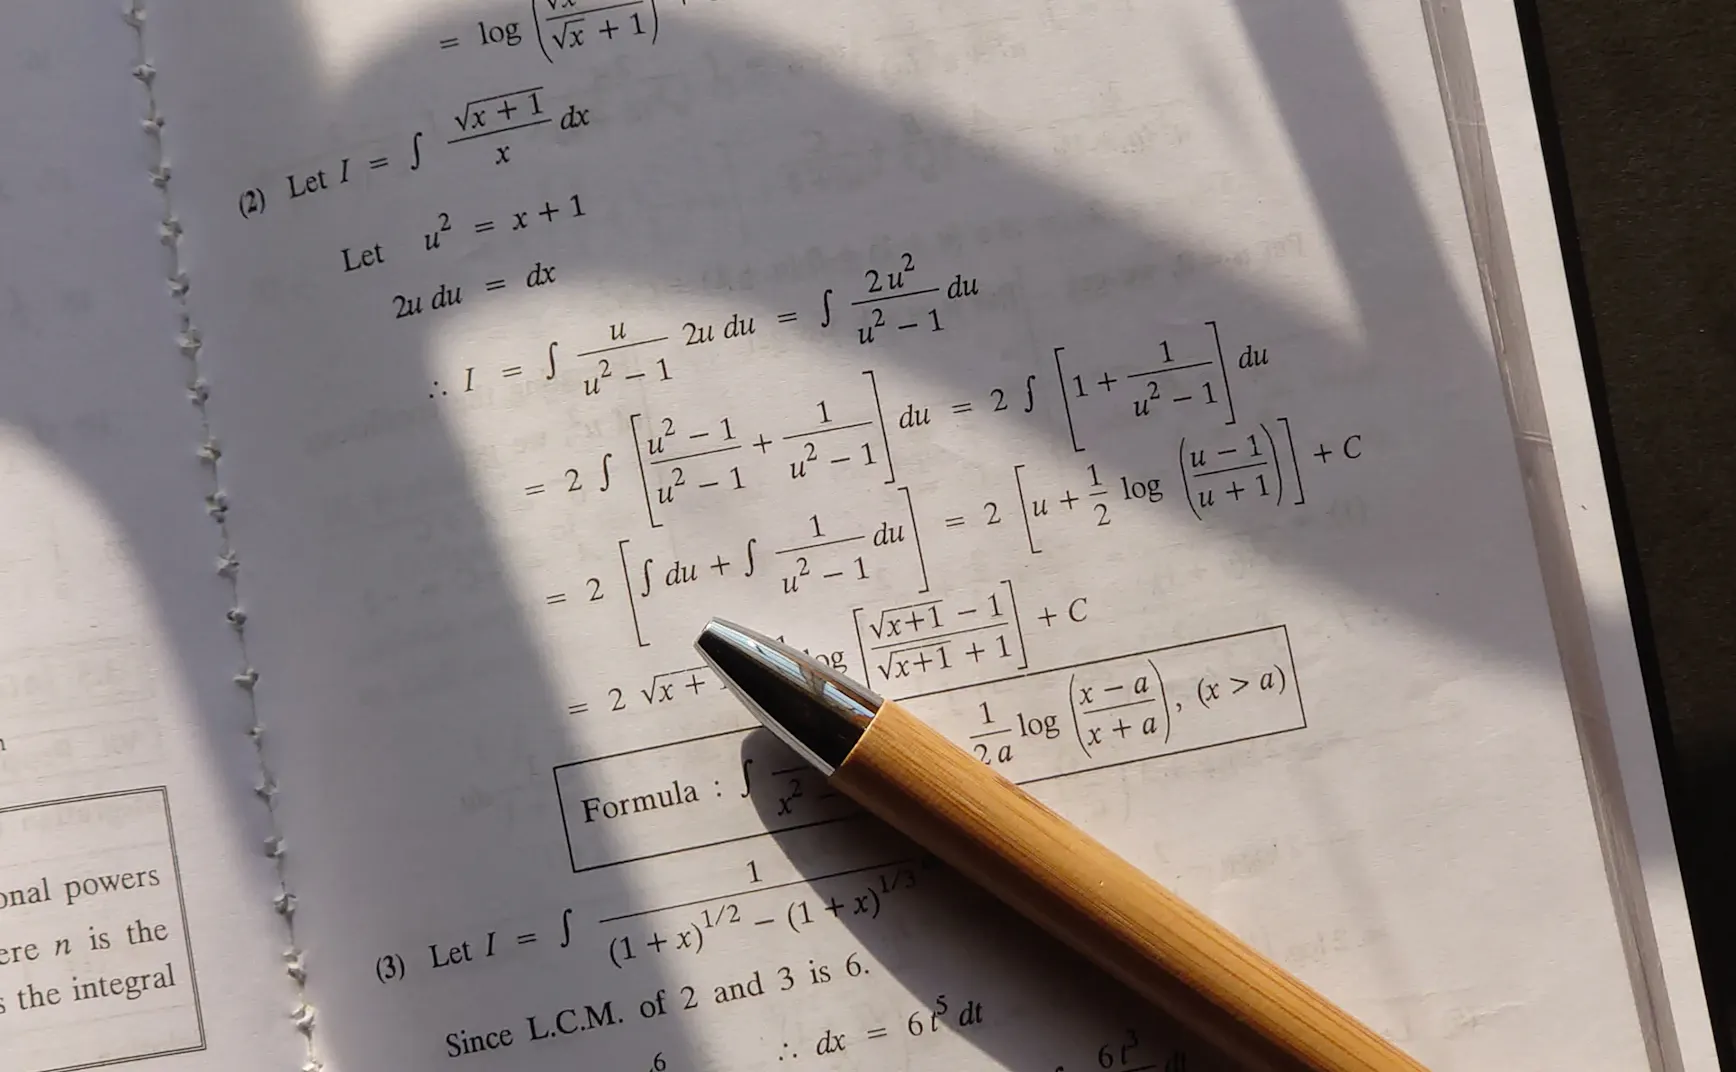 = log (√x / √x + 1)
(2) Let I = ∫ √x + 1 / x dx
Let u² = x + 1
2u du = dx
∴ I = ∫ u / u² − 1 2u du = ∫ 2u² / u² − 1 du
= 2 ∫ [u² − 1 / u² − 1 + 1 / u² − 1] du = 2 ∫ [1 + 1 / u² − 1] du
= 2 [∫ du + ∫ 1 / u² − 1 du] = 2 [u + 1/2 log (u − 1 / u + 1)] + C
= 2 √x + [√x+1 − 1 / √x+1 + 1] + C
Formula : ∫ x² 1 / 2a log (x − a / x + a), (x > a)
(3) Let I = ∫ 1 / (1 + x)^1/2 − (1 + x)^1/3
Since L.C.M. of 2 and 3 is 6.
6 ∴ dx = 6t⁵ dt 6t³
powers
n is the
the integral